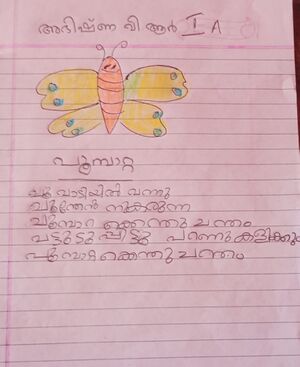 അഭിഷ്ണ വി ആർ I A
പൂമ്പാറ്റ
പൂ വാടിയിൽ വന്നു
പൂന്തേൻ നുകരുന്ന
പൂമ്പാറ്റക്കെന്തു ചന്തം
പട്ടുടുപ്പിട്ടു പറന്നു കളിക്കും
പൂമ്പാറ്റക്കെന്തു ചന്തം